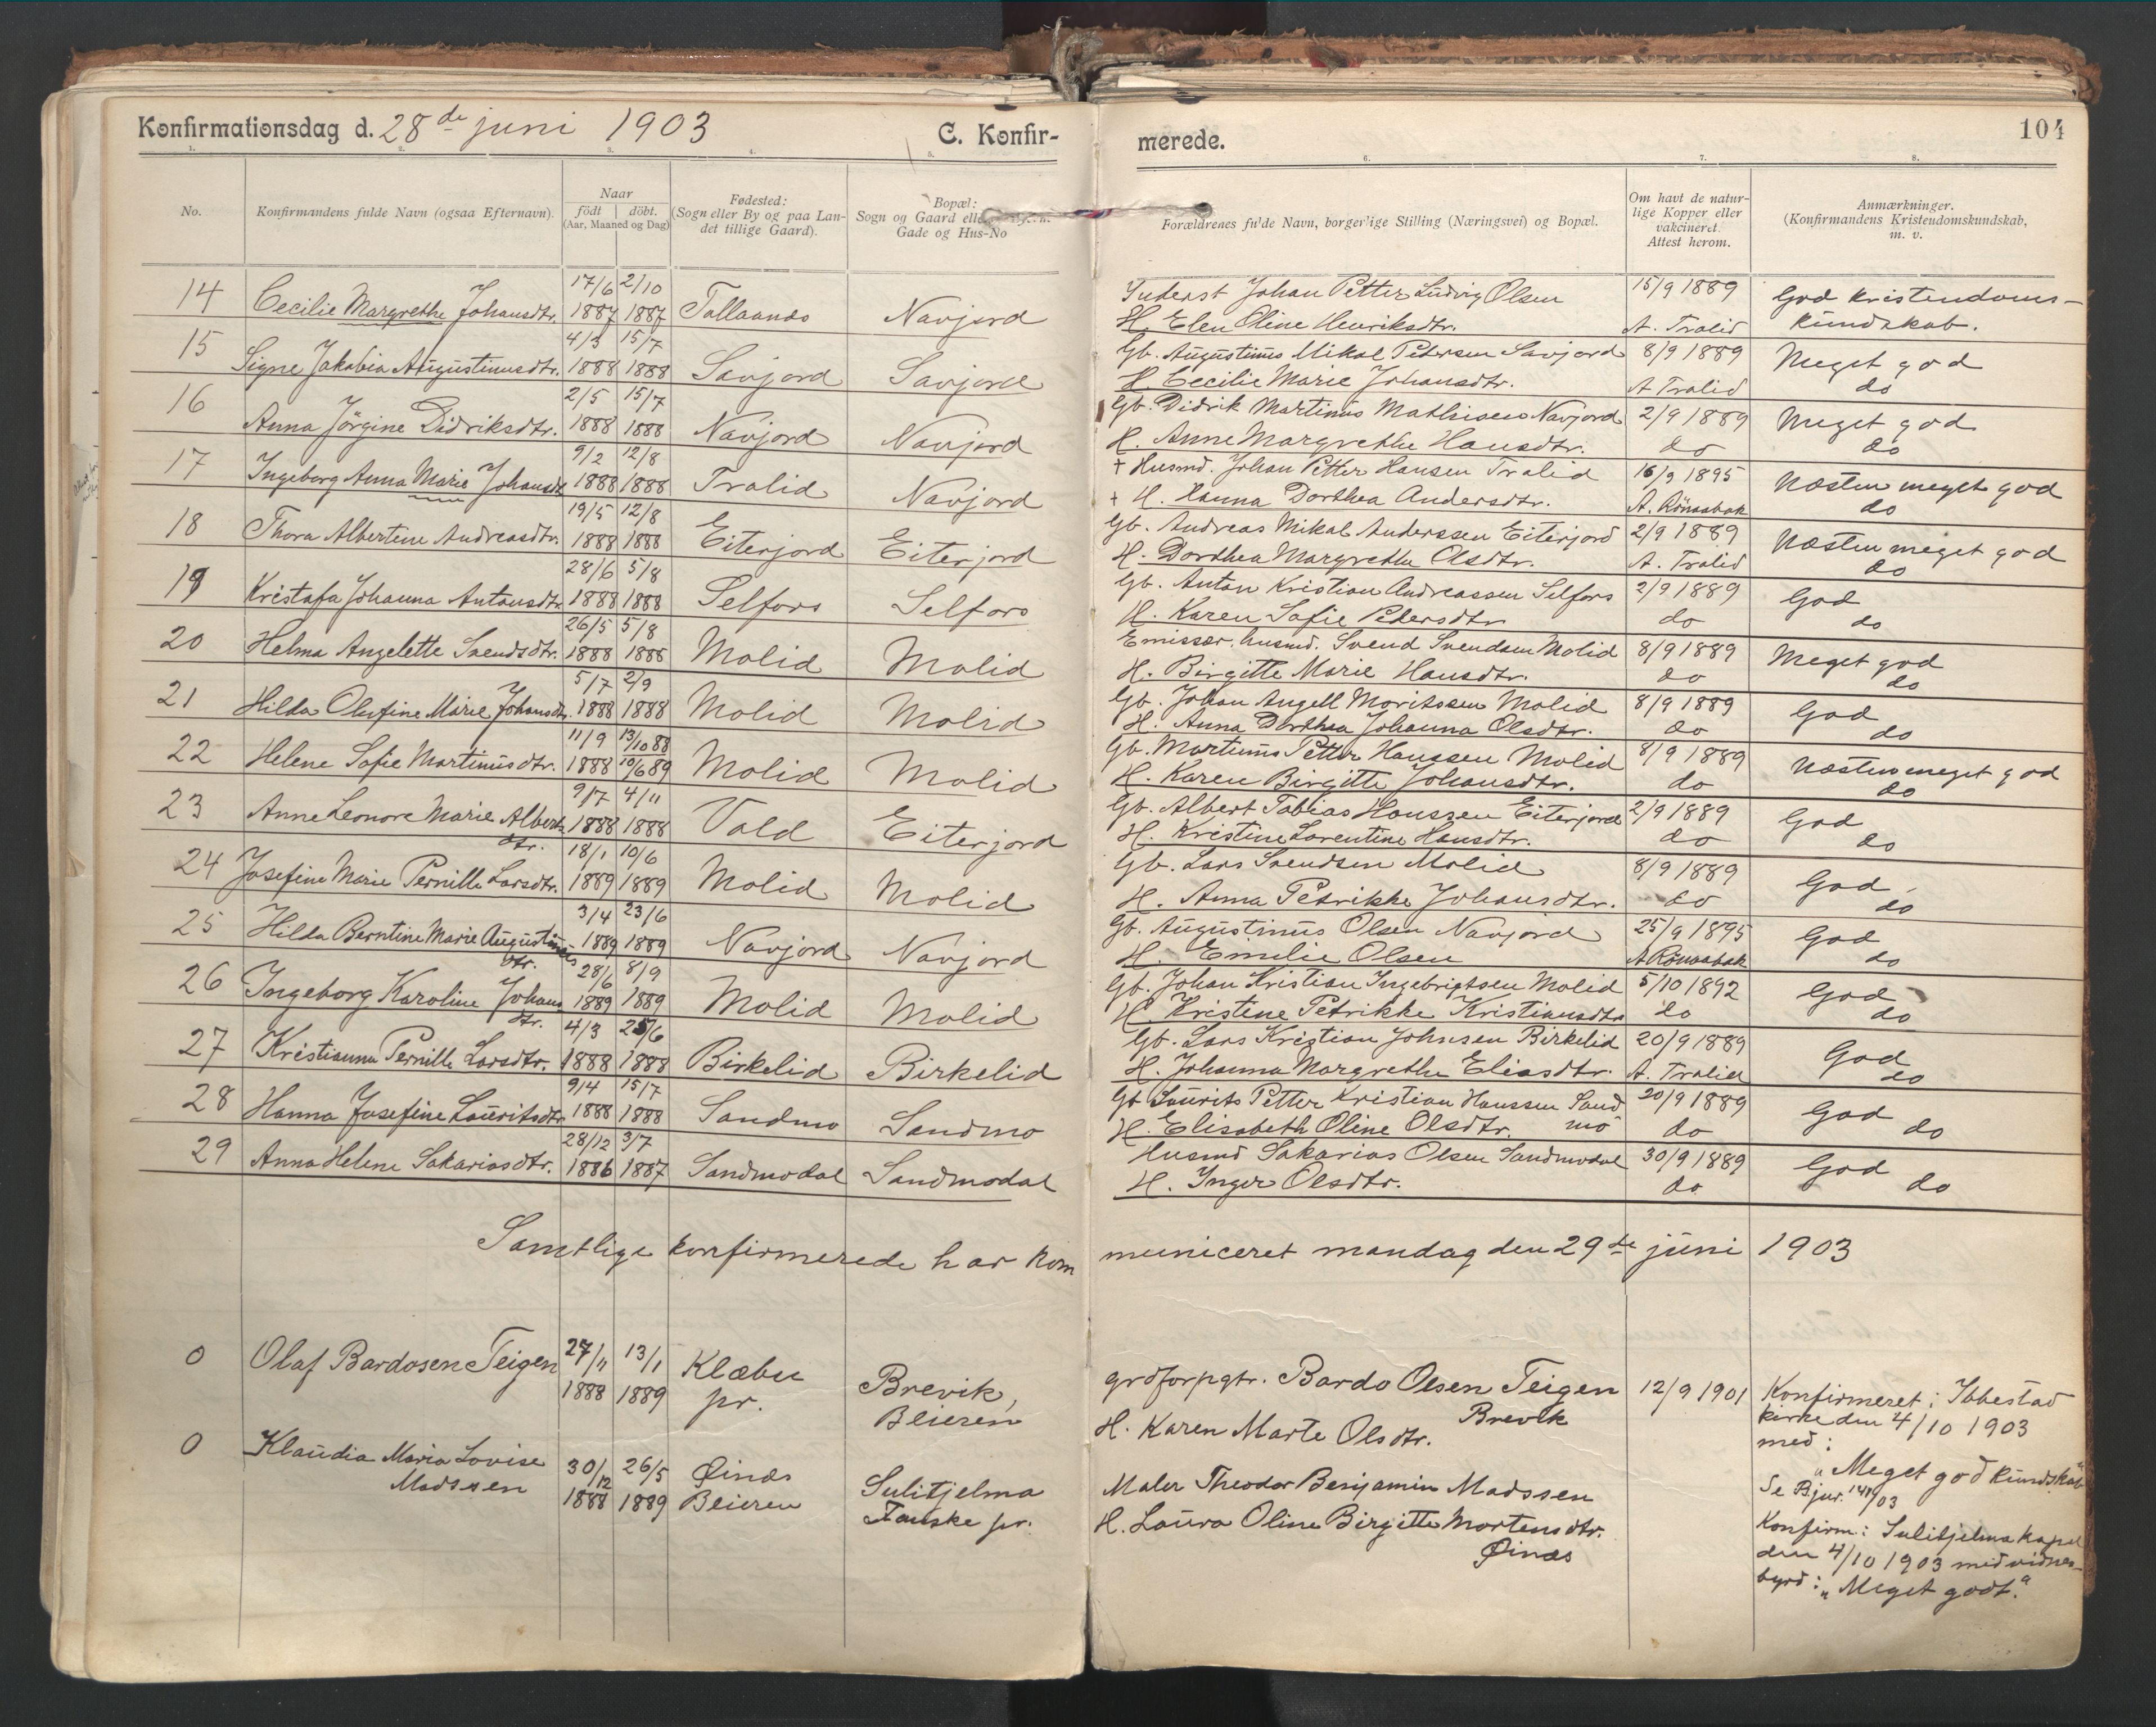 Konfirmationsdag d. 28de juni 1903
C. Konfir-
merede.
104
1. 2. 3. 4. 5. 6. 7. 8.
No.
Konfirmandens fulde Navn (ogsaa Efternavn).
Naar
födt döbt.
(Aar, Maaned og Dag)
Fødested:
(Sogn eller By og paa Lan-
det tillige Gaard).
Bopæl:
Sogn og Gaard eller
Gade og Hus-No
Forældrenes fulde Navn, borgerlige Stilling (Næringsvei) og Bopæl.
Om havt de natur-
lige Kopper eller
vakcineret.
Attest herom.
Anmærkninger.
(Konfirmandens Kristendomskundskab,
m. v.
14 Cecilie Margrethe Johansdtr. 17/6 1887 2/10 1887 Tollaanes Navjord
Johan Petter Ludvig Olsen 15/9 1889 God kristendoms-
H. Elen Oline Henriksdtr. A. Tralid kundskab.
15 Signe Jakobia Augustinusdtr. 4/3 1888 15/7 1888 Savjord Savjord
Gb. Augustinus Mikal Petersen Savjord 8/9 1889 Meget god
H. Cecilie Marie Johansdtr. A Tralid do
16 Anna Jörgine Didriksdtr. 2/5 1888 15/7 1888 Navjord Navjord
Gb. Didrik Martinus Mathisen Navjord 2/9 1889 Meget god
H. Anne Margrethe Hansdtr. do do
17 Ingeborg Anna Marie Johansdt 9/2 1888 12/8 1888 Tralid Navjord
+ Husmd. Johan Petter Hansen Tralid 16/9 1895 Næsten meget god
+ H. Hanna Dorthea Andersdtr. A. Rönaabak do
18 Thora Albertine Andreasdtr. 19/5 1888 12/8 1888 Eiterjord Eiterjord
Gb. Andreas Mikal Anderssen Eiterjord 2/9 1889 Næsten meget god
H. Dorthea Margrethe Olsdtr. A. Tralid do
19 Kristofa Johanna Antonsdtr 28/6 1888 5/8 1888 Selfors Selfors
Gb. Anton Kristian Andreassen Selfors 2/9 1889 God
H. Karen Sofie Pedersdtr do do
20 Helma Angelette Svendsdtr. 26/5 1888 5/8 1888 Molid Molid
Emissær, husmd. Svend Svendsen Molid 8/9 1889 Meget god
H. Birgitte Marie Hansdtr. do do
21 Hilda Olufine Marie Johansdtr. 5/7 1888 2/9 1888 Molid Molid
Gb. Johan Angell Moritssen Molid 8/9 1889 God
H. Anna Dorthea Johanna Olsdtr. do do
22 Helene Sofie Martinusdtr. 11/9 1888 13/10 88 10/6 89 Molid Molid
Gb. Martinus Petter Hanssen Molid 8/9 1889 Næsten meget god
H. Karen Birgitte Johansdtr. do do
23 Anne Leonore Marie Alberts 9/7 1888 4/11 1888 Vold Eiterjord
dtr.
Gb. Albert Tobias Hanssen Eiterjord 2/9 1889 God
H. Kristine Lorentine Hansdtr. do do
24 Josefine Marie Pernille Larsdtr. 18/1 1889 10/6 1889 Molid Molid
Gb. Lars Svendsen Molid 8/9 1889 God
H. Anna Petrikke Johansdtr. do do
25 Hilda Berntine Marie Augustinus 3/4 1889 23/6 1889 Navjord Navjord
dtr.
Gb. Augustinus Olsen Navjord 25/9 1895 God
H. Emilie Olsen A Rönaabak do
26 Ingeborg Karoline Johans 28/6 1889 8/9 1889 Molid Molid
dtr.
Gb. Johan Kristian Ingebrigtsen Molid 5/10 1892 God
H. Kristine Petrikke Kristiansdtr do do
27 Kristianna Pernille Larsdtr. 4/3 1888 25/6 1888 Birkelid Birkelid
Gb. Lars Kristian Johnsen Birkelid 20/9 1889 God
H. Johanna Margrethe Eliasdtr. A. Tralid do
28 Hanna Josefine Lauritsdtr 9/4 1888 15/7 1888 Sandmo Sandmo
Gb Laurits Petter Kristian Hanssen Sand 20/9 1889 God
H. Elisabeth Oline Olsdtr. mo do do
29 Anna Helene Sakariasdtr. 28/12 1886 3/7 1887 Sandmodal Sandmodal
Husmd Sakarias Olsen Sandmodal 30/9 1889 God
H. Inger Olsdtr. do do
Samtlige konfirmerede har kom municeret mandag den 29de juni 1903
0 Olaf Bardosen Teigen 27/11 1888 13/1 1889 Klæbu pr. Brevik, Beieren
grdforpgtr. Bardo Olsen Teigen 12/9 1901 Konfirmeret i Ibbestad
Brevik kirke den 4/10 1903
H. Karen Marte Olsdtr. med:
"Meget god kundskab"
Se B.jur. 141/03
0 Klaudia Maria Lovise 30/12 1888 26/5 1889 Øinæs Beieren Sulitjelma
Madssen Fauske pr.
Maler Theodor Benjamin Madssen
H. Laura Oline Birgitte Mortensdtr.
Øinæs
Konfirm: Sulitjelma kapel
den 4/10 1903 med vidnes-
byrd: "Meget godt."